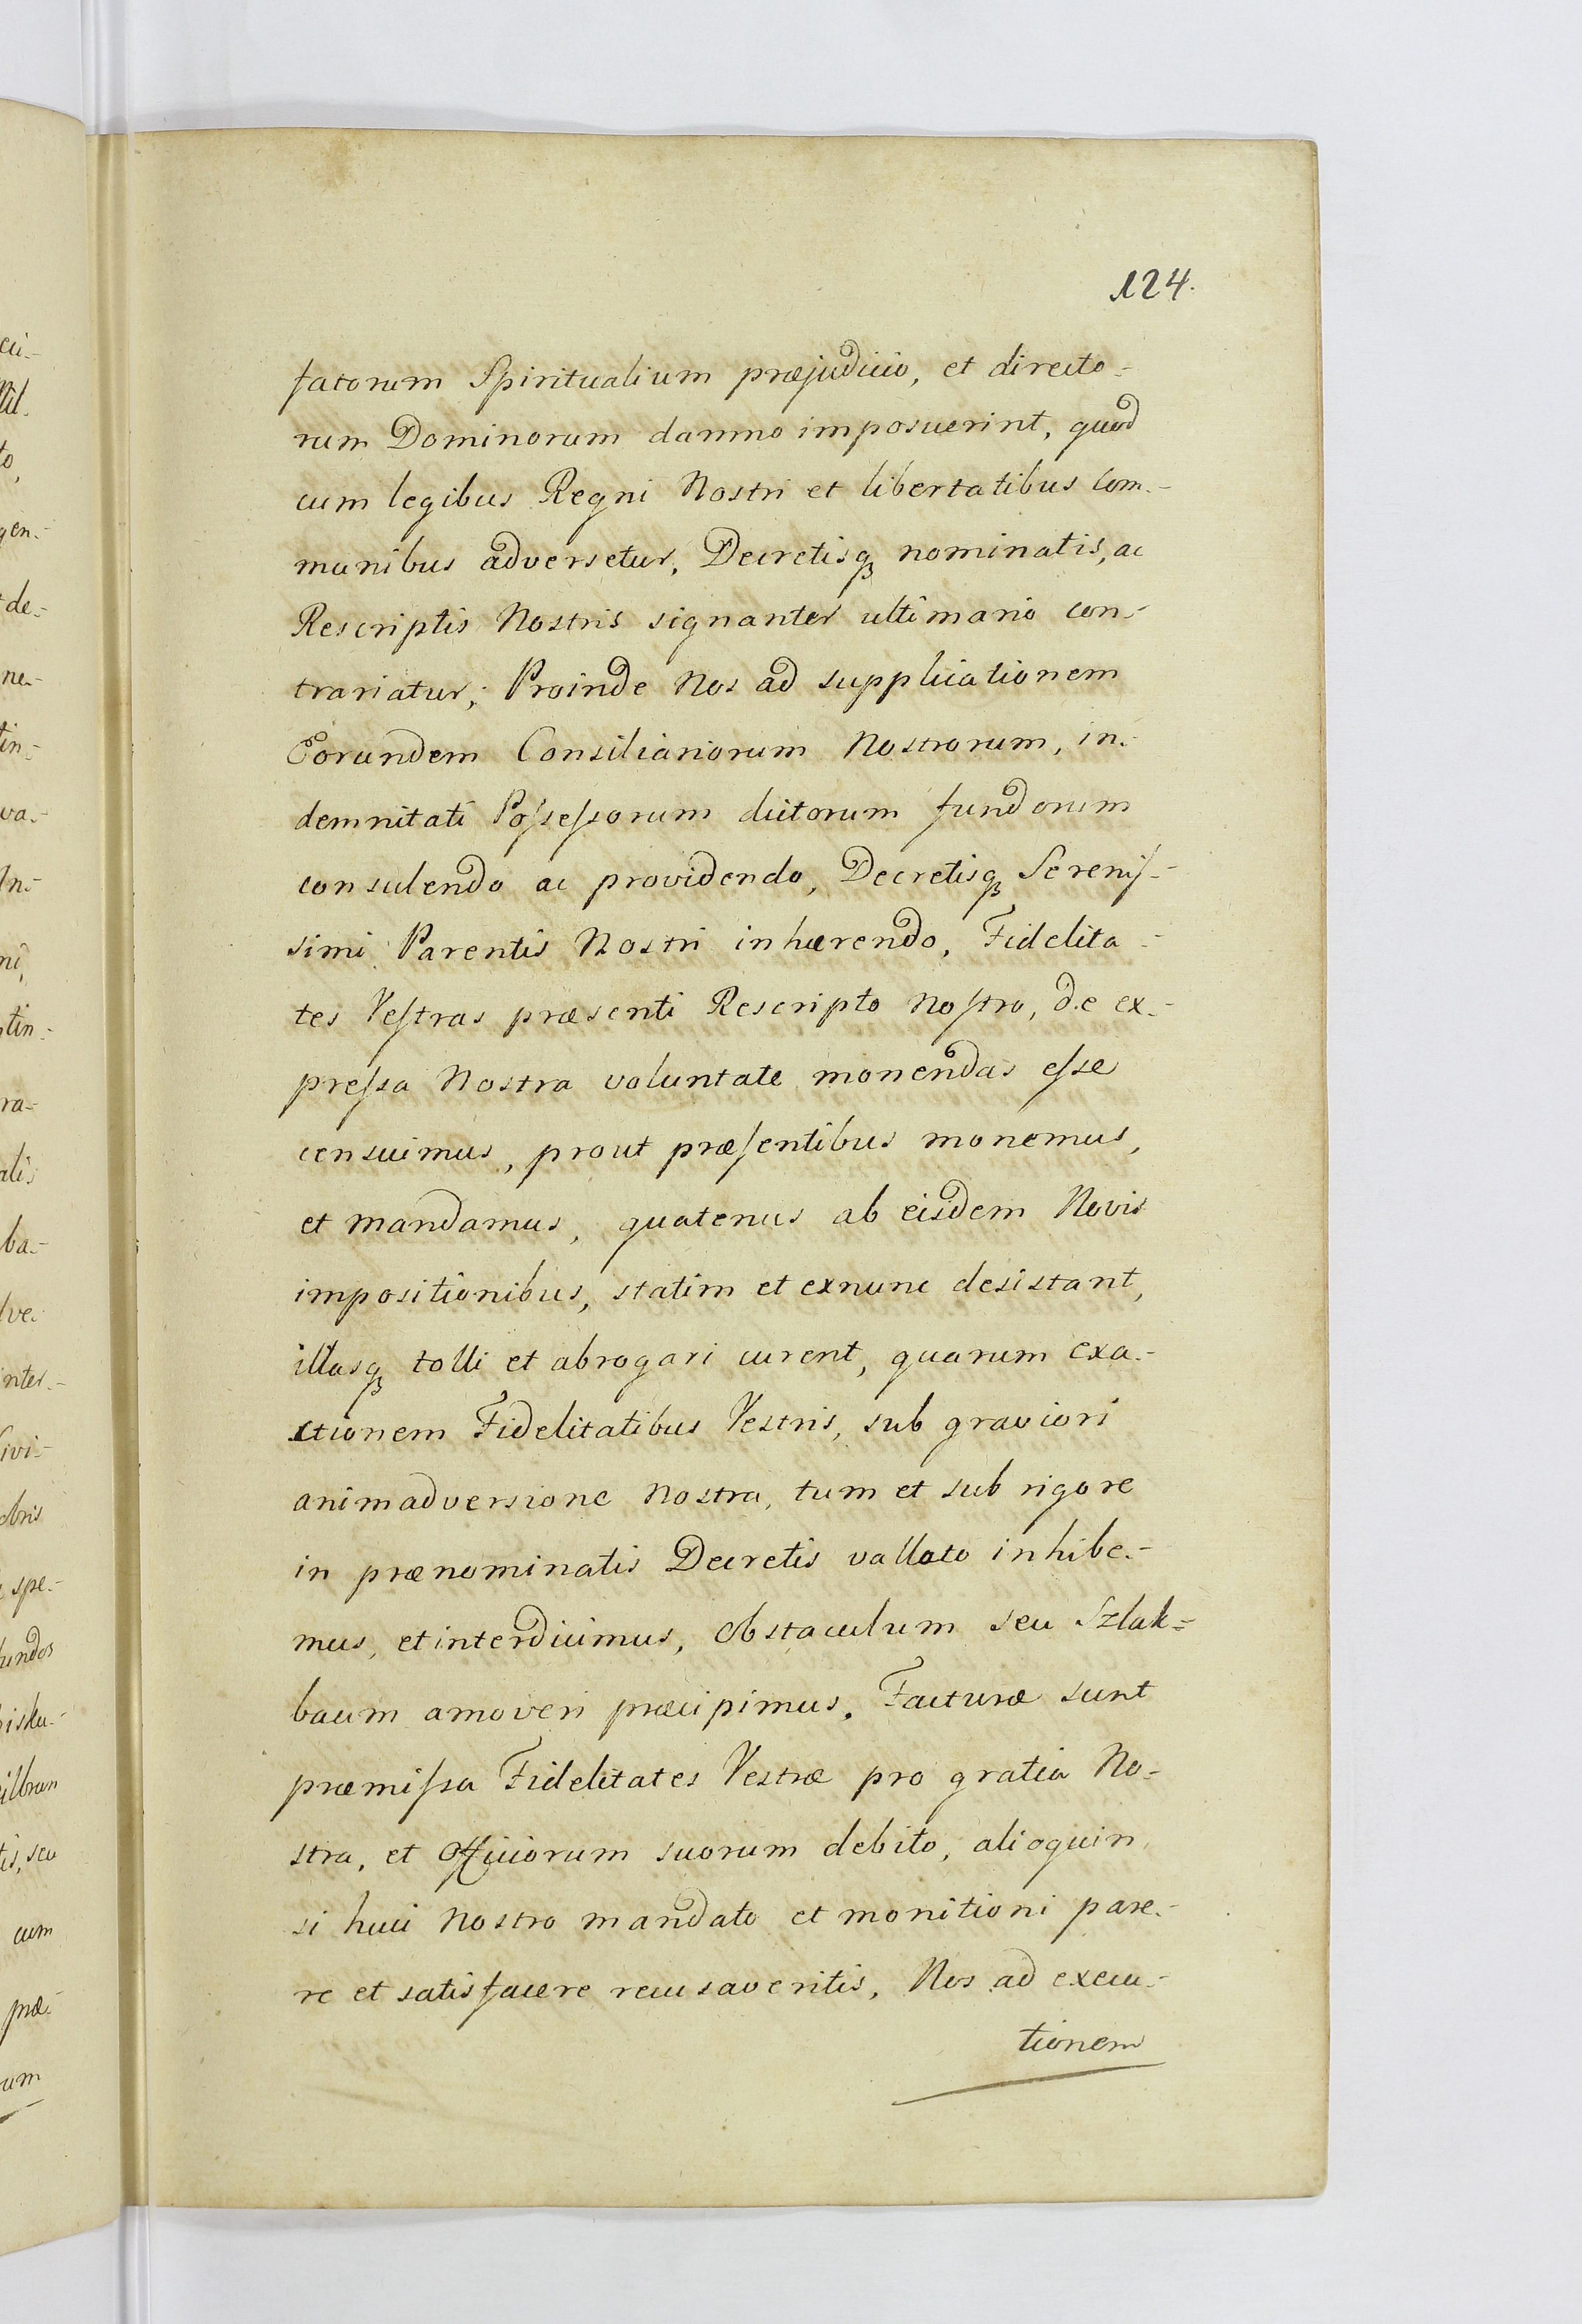 124.
fatorum Spiritualium præjudicio, et directo-
rum Dominorum damno imposuerint, quod
cum legibus Regni Nostri et libertatibus com-
munibus adversetur, Decretisq nominatis, ac
Rescriptis Nostris signanter ultimario con-
trariatur; Proinde Nos ad supplicationem
Eorundem Consiliariorum Nostrorum, in-
demnitati Poſseſsorum dictorum fundorum
consulendo ac providendo, Decretisq Sereniſ-
simi Parentis Nostri inhærendo, Fidelita-
tes Veſtras præsenti Rescripto noſtro, de ex-
preſsa Nostra voluntate monendas eſse
censuimus, prout præſentibus monemus,
et mandamus, quatenus ab eisdem Novis
impositionibus, statim et exnunc desistant,
illasq tolli et abrogari curent, quarum exa-
ctionem Fidelitatibus Vestris, sub graviori
animadversione nostra, tum et sub rigore
in prænominatis Decretis vallato inhibe-
mus, et interdicimus, Obstaculum seu Szlak=
baum amoveri præcipimus. Facturæ sunt
præmiſsa Fidelitates Vestræ pro gratia No-
stra, et Officiorum suorum debito, alioquin
si huic nostro mandato et monitioni pare-
re et satisfacere recusaveritis, Nos ad execu-
tionem